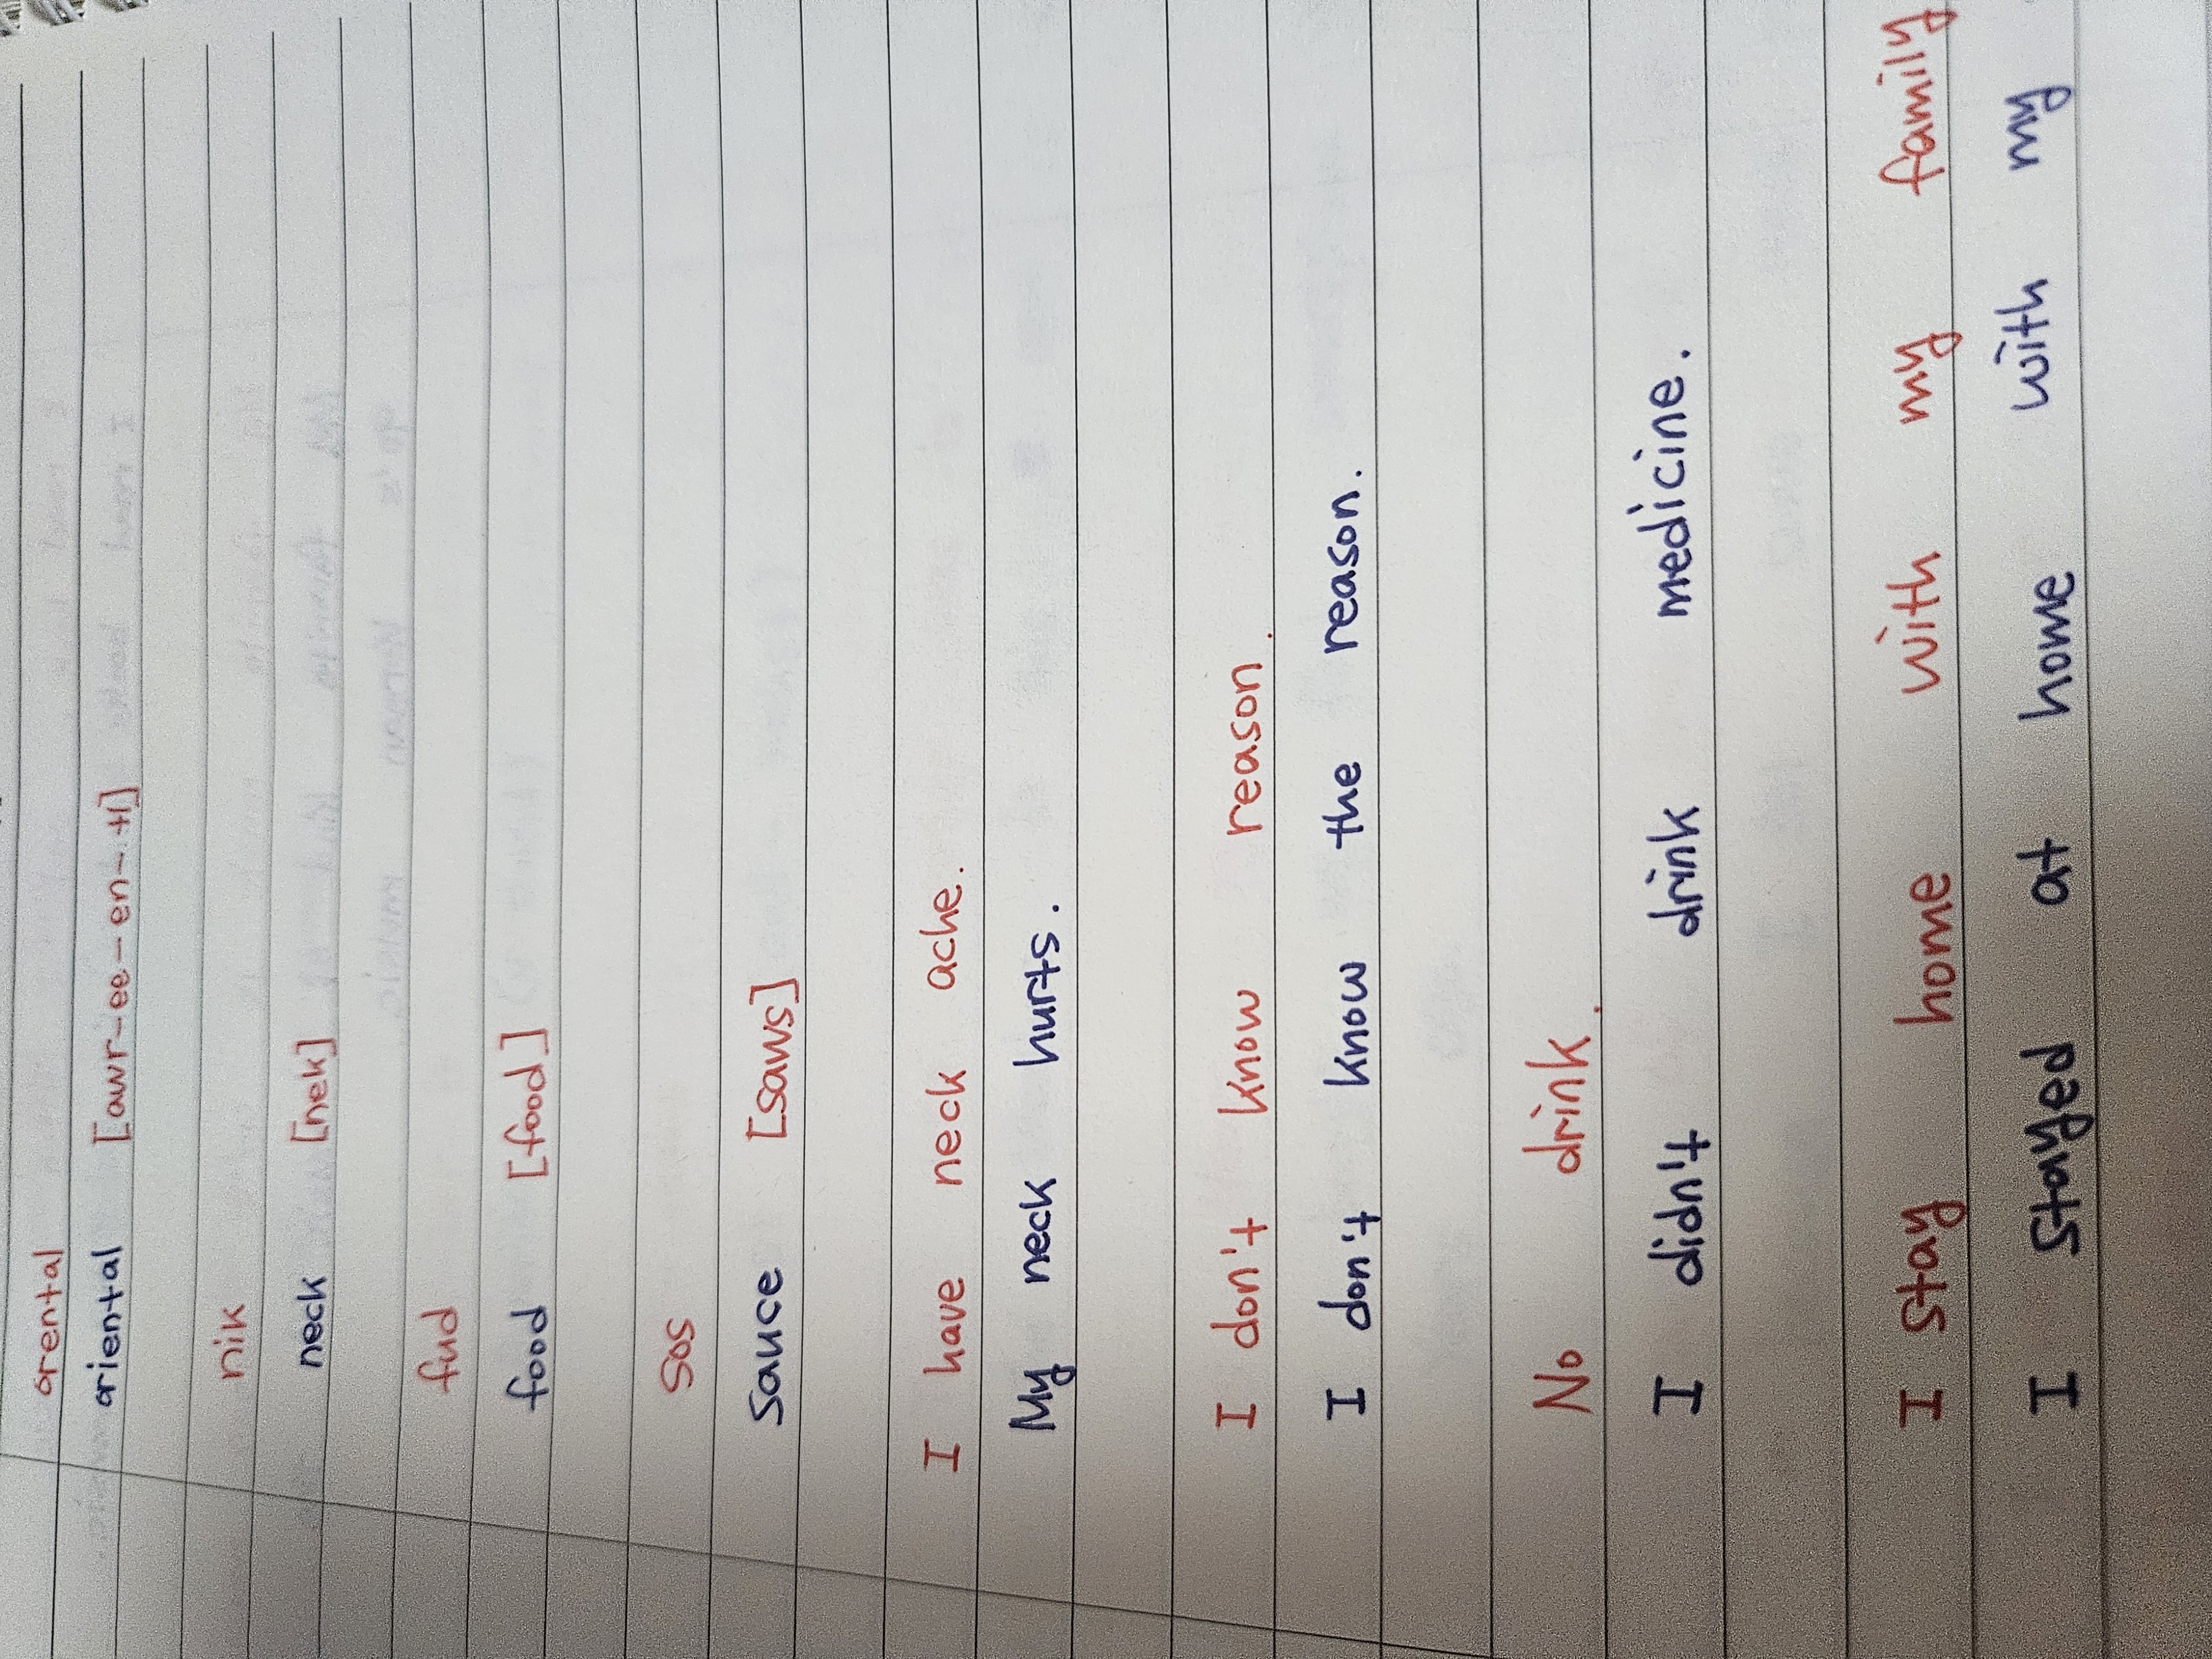 orental
oriental [awr-ee-en-tl]
nik
neck [nek]
fud
food [food]
sos
Sauce [saws]
I have neck ache.
My neck hurts.
I don't know reason.
I don't know the reason.
No drink.
I didn't drink medicine.
I stay home with my family
I stayed at home with my